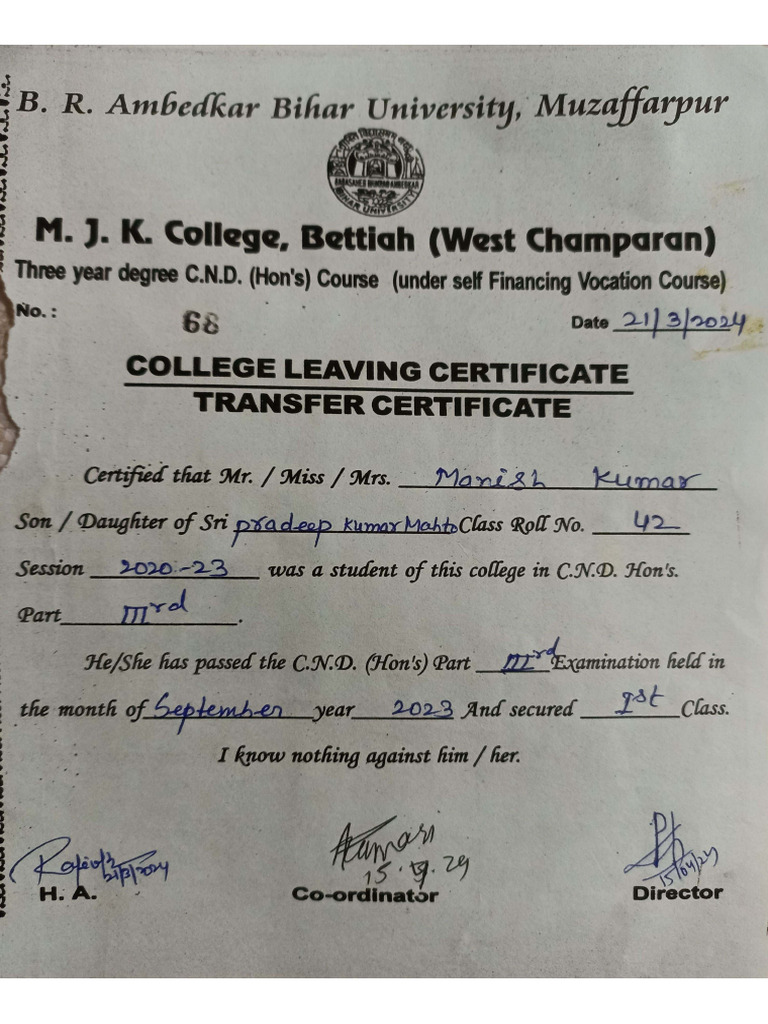 B. R. Ambedkar Bihar University, Muzaffarpur
BIHAR UNIVERSITY
M. J. K. College, Bettiah (West Champaran)
Three year degree C.N.D. (Hon's) Course (under self Financing Vocation Course)
No. : 68 Date 21/3/2024
COLLEGE LEAVING CERTIFICATE
TRANSFER CERTIFICATE
Certified that Mr. / Miss / Mrs. Manish Kumar
Son / Daughter of Sri pradeep Kumar Mahto Class Roll No. 42
Session 2020-23 was a student of this college in C.N.D. Hon's.
Part IIIrd.
He/She has passed the C.N.D. (Hon's) Part IIIrd Examination held in
the month of September year 2023 And secured Ist Class.
I know nothing against him / her.
21/3/2024 Kumari 15/04/24
H. A. Co-ordinator Director